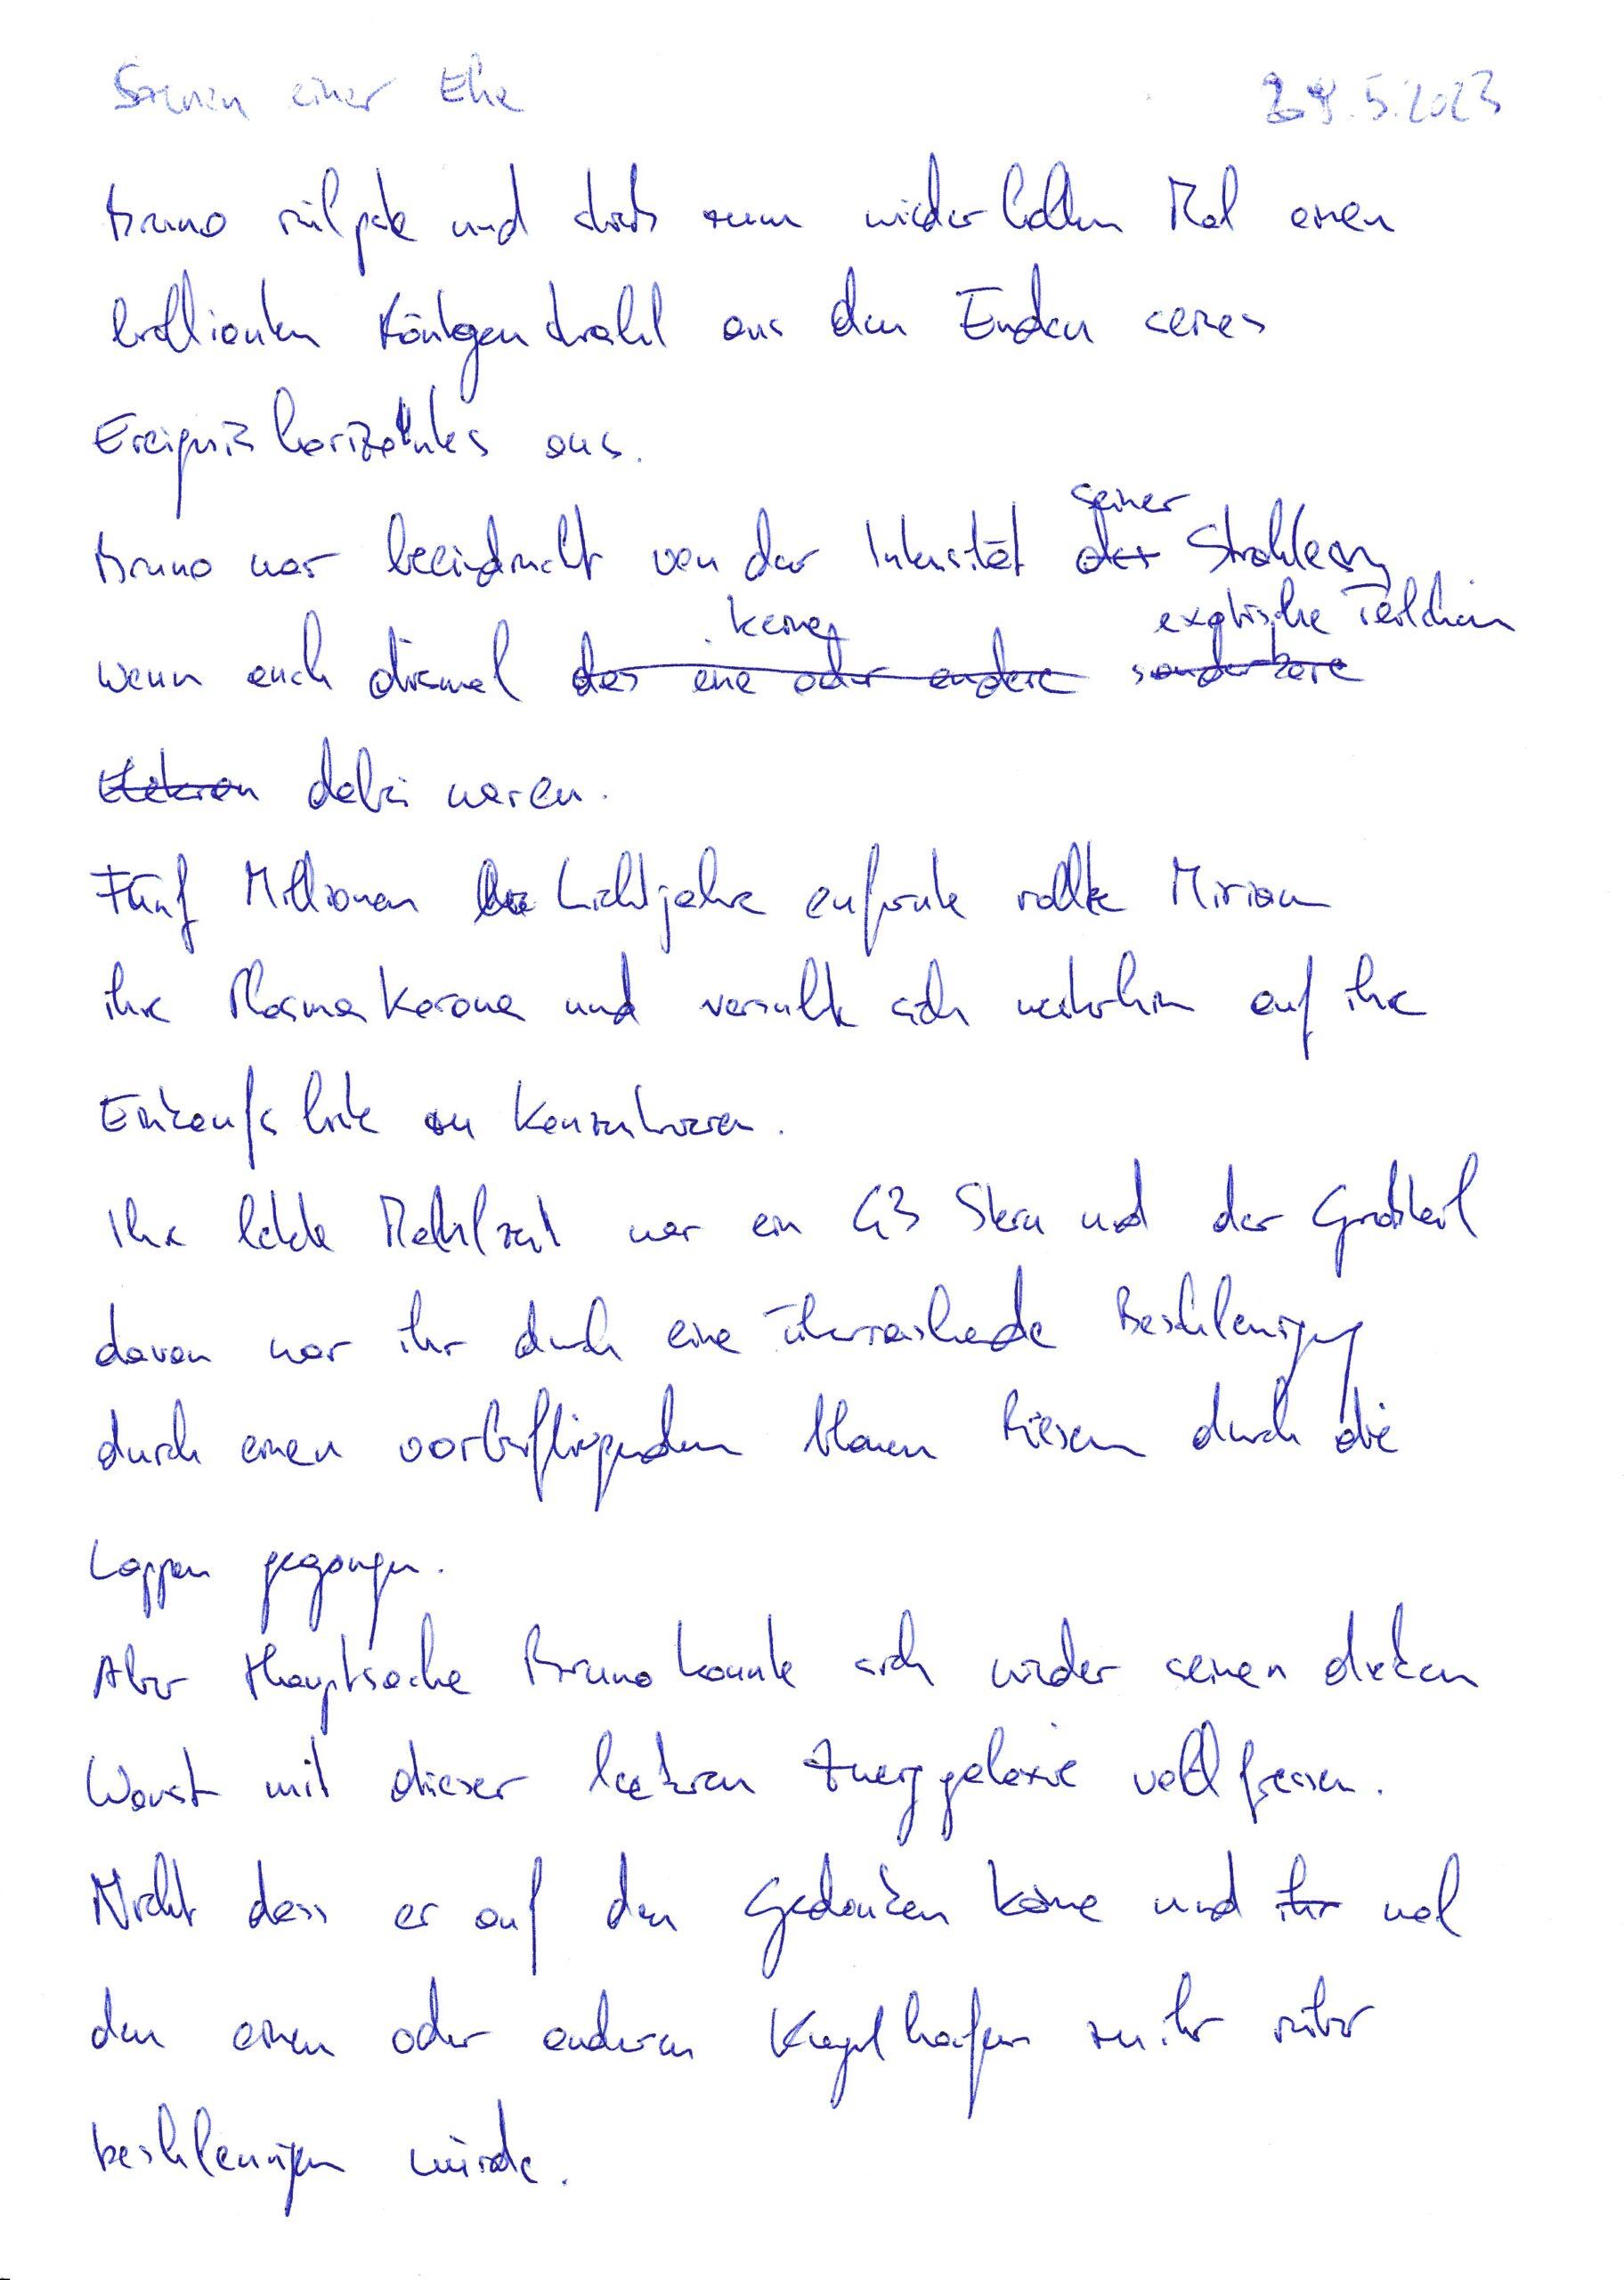 Szenen einer Ehe 24.5.2023
Bruno rülpste und stieß zum wiederholten Mal einen
brillianten Röntgenstrahl aus den Enden seines
Ereignishorizontes aus.
seiner
Bruno war beeindruckt von der Intensität der Strahlen
keine exotische Teilchen
wenn auch diesmal das eine oder andere sonderbare
dabei waren.
Fünf Millionen Lichtjahre entfernte rollte Miriam
ihre Plasmakorona und versuchte sich weiterhin auf ihre
Einkaufsliste zu konzentrieren.
Ihre letzte Mahlzeit war ein G3 Stern und der Großteil
davon war ihr durch eine überraschende Beschleunigung
durch einen vorbeifliegenden blauen Riesen durch die
Lappen gegangen.
Aber Hauptsache Bruno konnte sich wieder seinen dicken
Wanst mit dieser leckeren Zwerggalaxie vollfressen.
Nicht dass er auf den Gedanken käme und ihr mal
den einen oder anderen Kugelhaufen zu ihr rüber
beschleunigen würde.